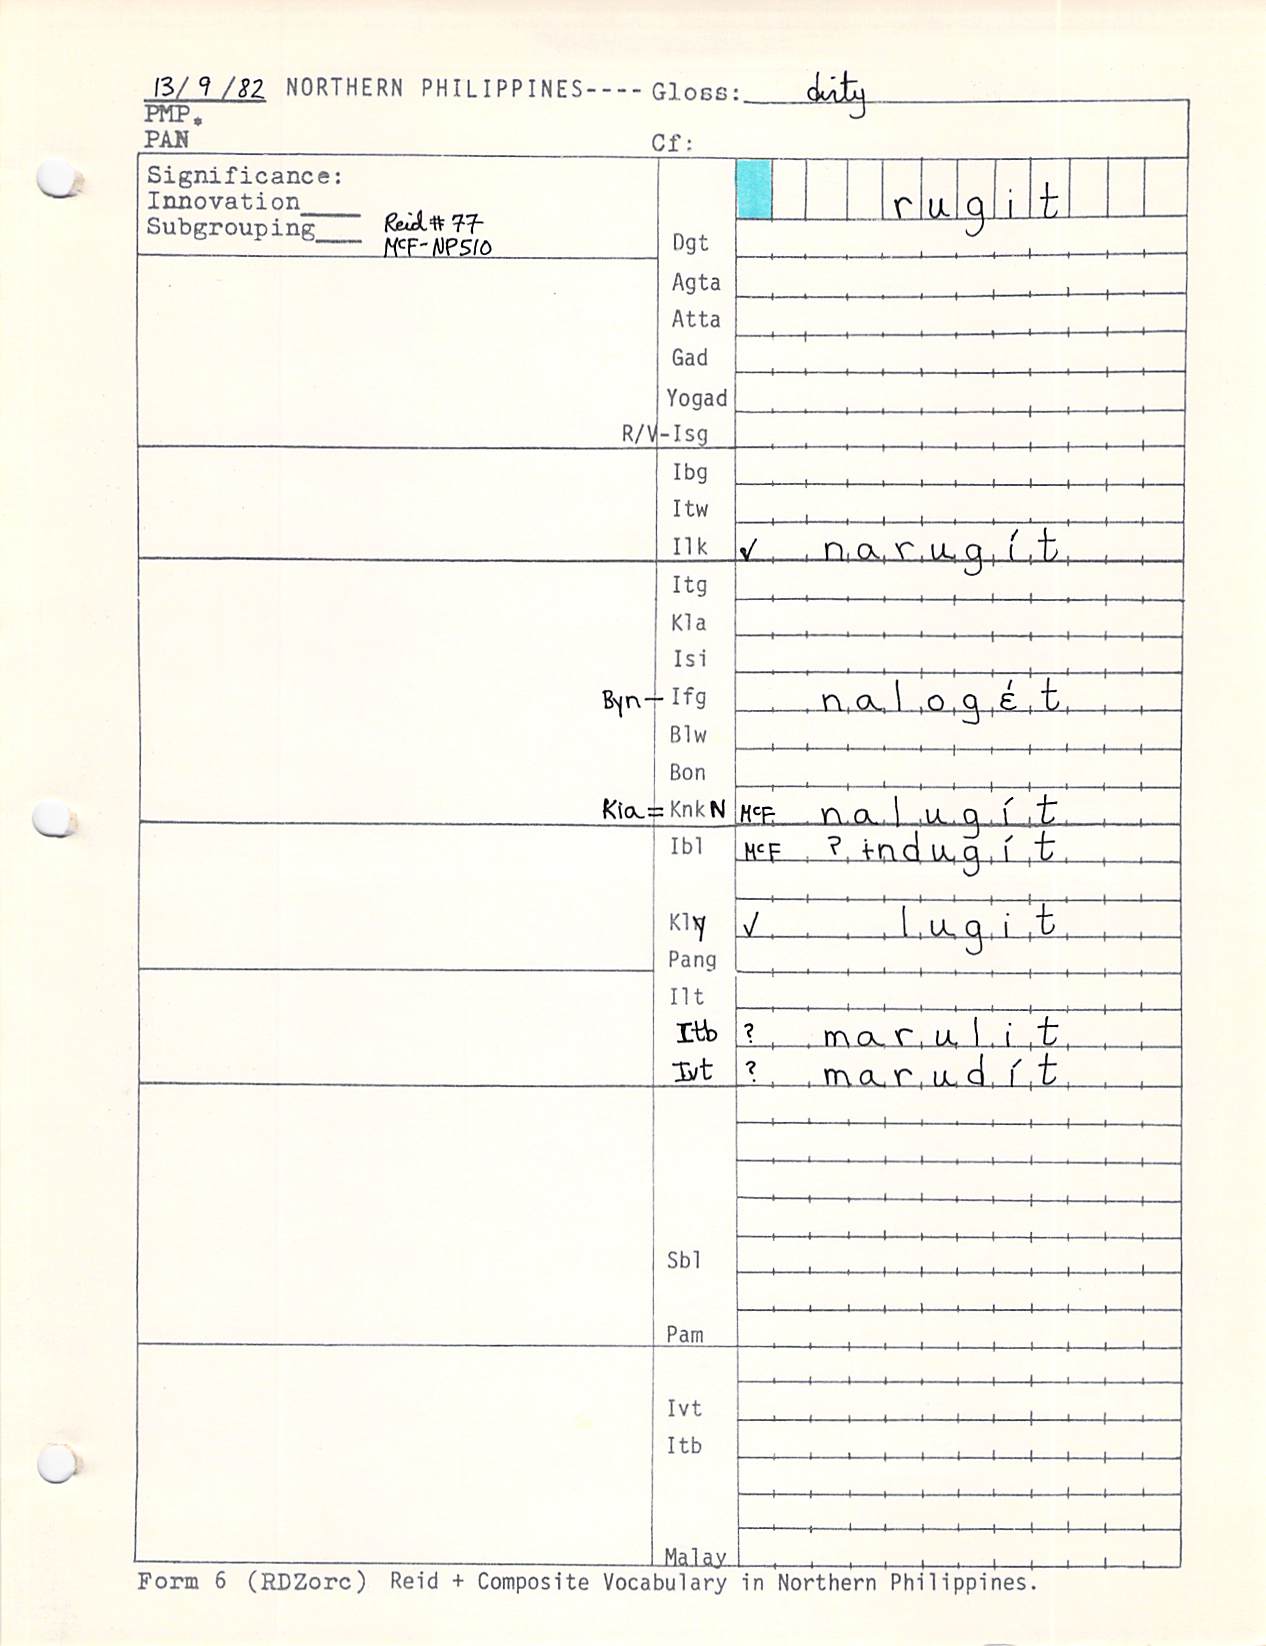 13/9/82 NORTHERN PHILIPPINES---- Gloss: dirty
PMP*
PAN Cf:
Significance:
Innovation____
Subgrouping____ Reid # 77
McF-NP510
rugit
Dgt
Agta
Atta
Gad
Yogad
R/V-Isg
Ibg
Itw
Ilk ✓ narugít
Itg
Kla
Isi
Byn- Ifg nalogɛ́t
Blw
Bon
Kia = Knk N McF nalugít
Ibl McF ?ɨndugít
Kly ✓ lugit
Pang
Ilt
Itb ? marulit
Ivt ? marudít
Sbl
Pam
Ivt
Itb
Malay
Form 6 (RDZorc) Reid + Composite Vocabulary in Northern Philippines.